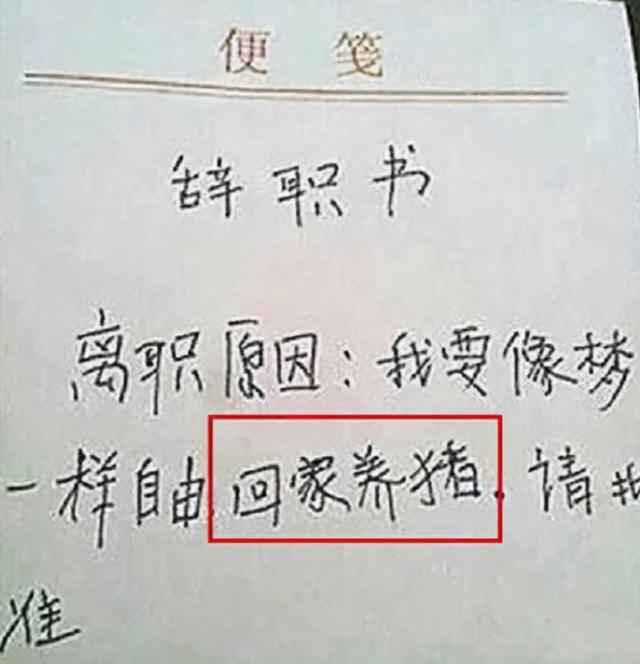 便笺
辞职书
离职原因:我要像梦
一样自由,回家养猪.请批
准